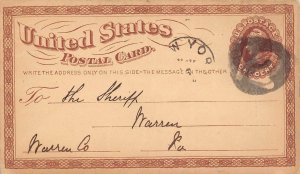 United States
POSTAL CARD.
WRITE THE ADDRESS ONLY ON THIS SIDE - THE MESSAGE ON THE OTHER
To the Sheriff
Warren
Warren Co Pa